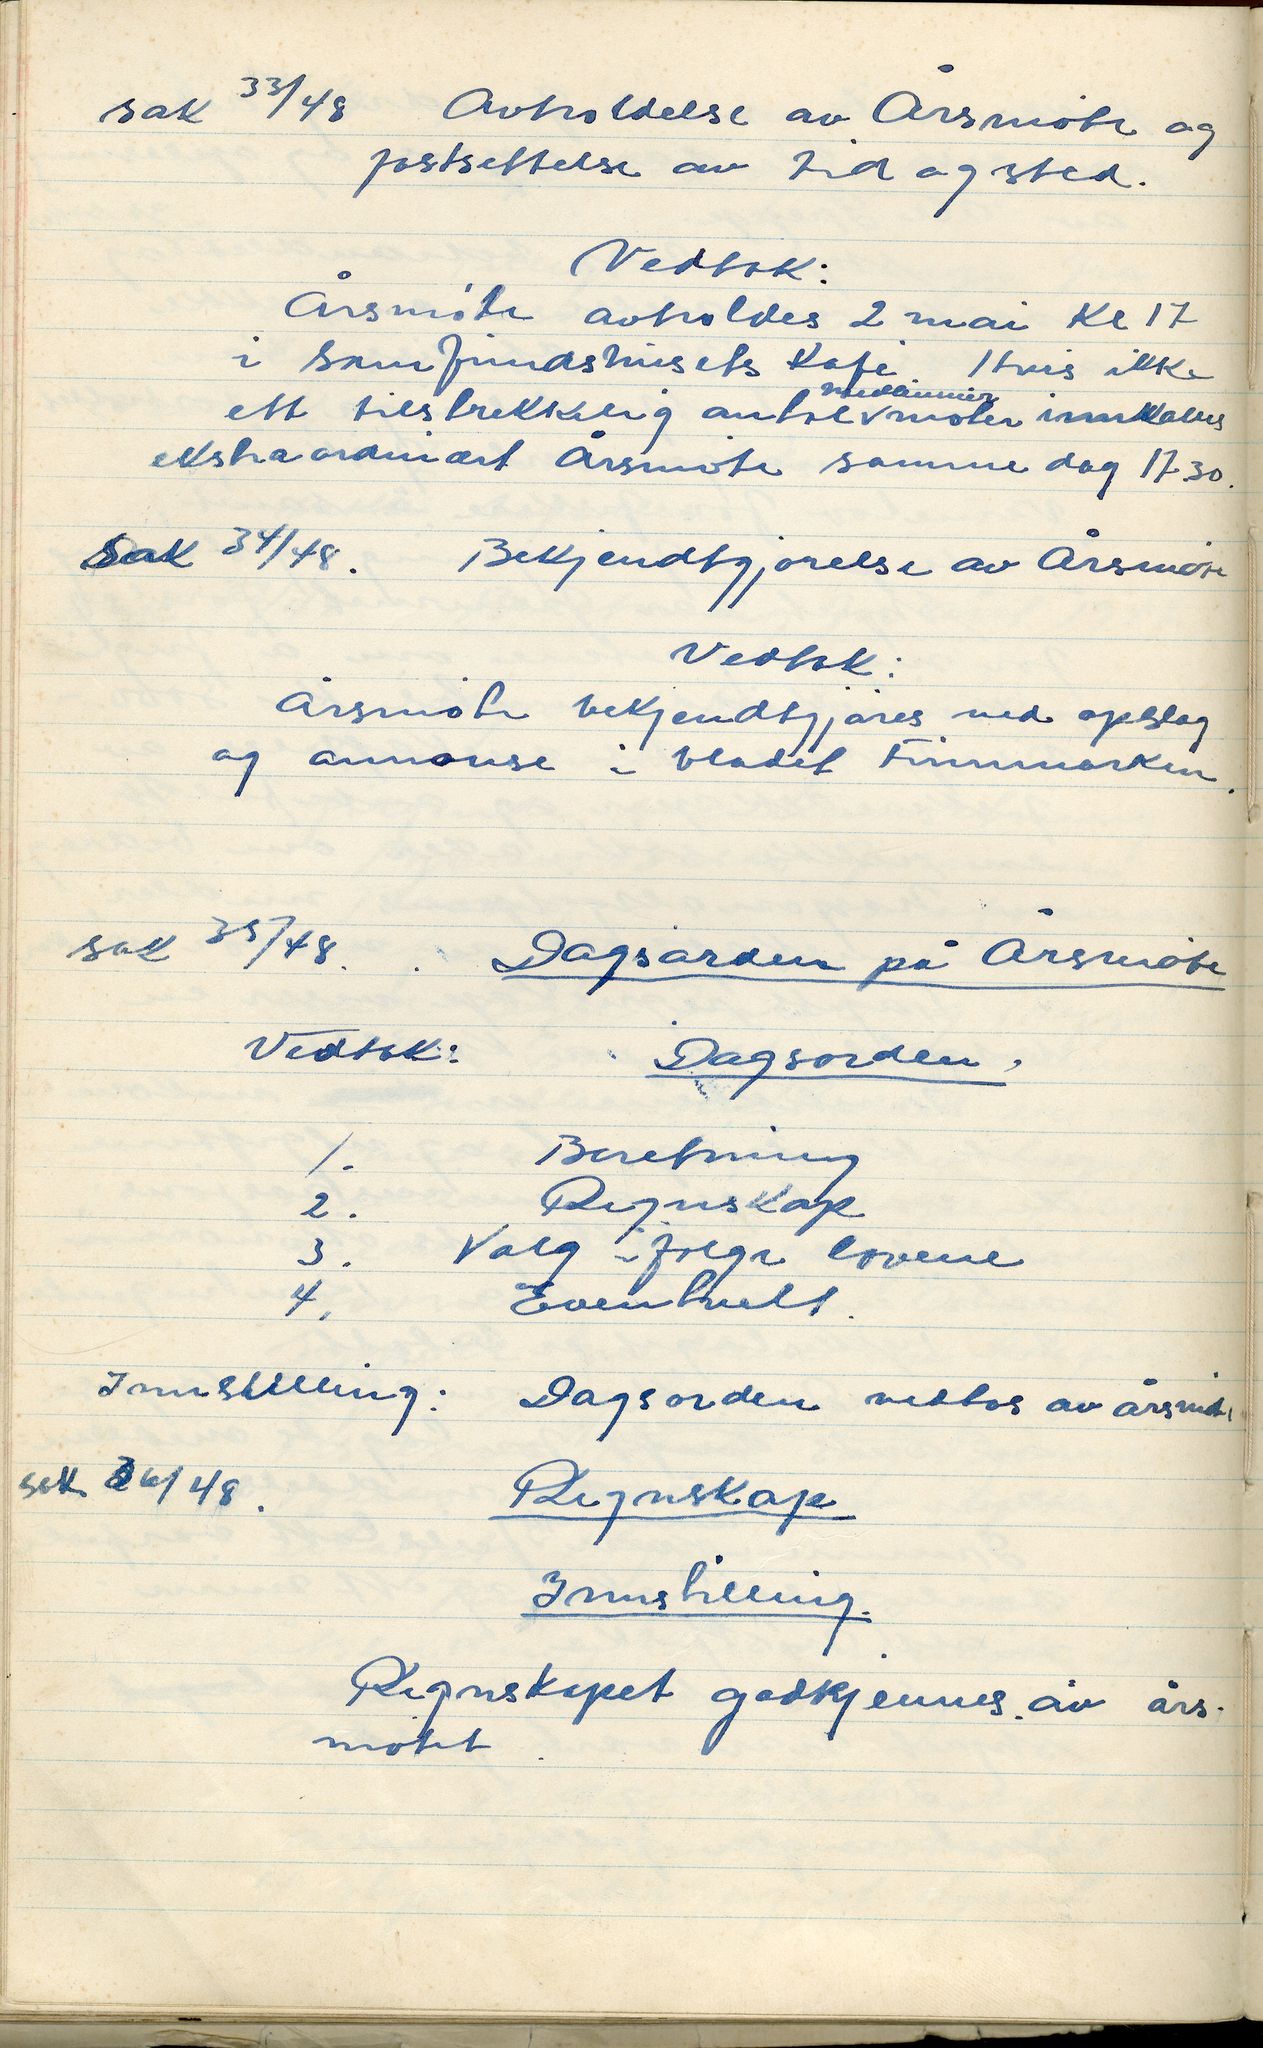 sak 33/48 Avholdelse av Årsmøte og
fastsettelse av tid og sted.
Vedtak:
Årsmøte avholdes 2 mai Kl 17
i Samfundshusets Kafe. Hvis ikke
medlemmer
ett tilstrekkelig antal v møter innkalles
ekstraordinært Årsmøte samme dag 17.30.
Sak 34/48. Bekjendtgjørelse av Årsmøte
Vedtak:
Årsmøte bekjendtgjøres ved opslag
og annonse i bladet Finnmarken.
sak 35/48. Dagsorden på Årsmøte
Vedtak: Dagsorden.
1. Beretning
2. Regnskap
3. Valg ifølge lovene
4. Eventuelt.
Innstilling: Dagsorden vedtas av årsmøte
sak 36/48. Regnskap
Innstilling.
Regnskapet godkjennes av års-
møtet.